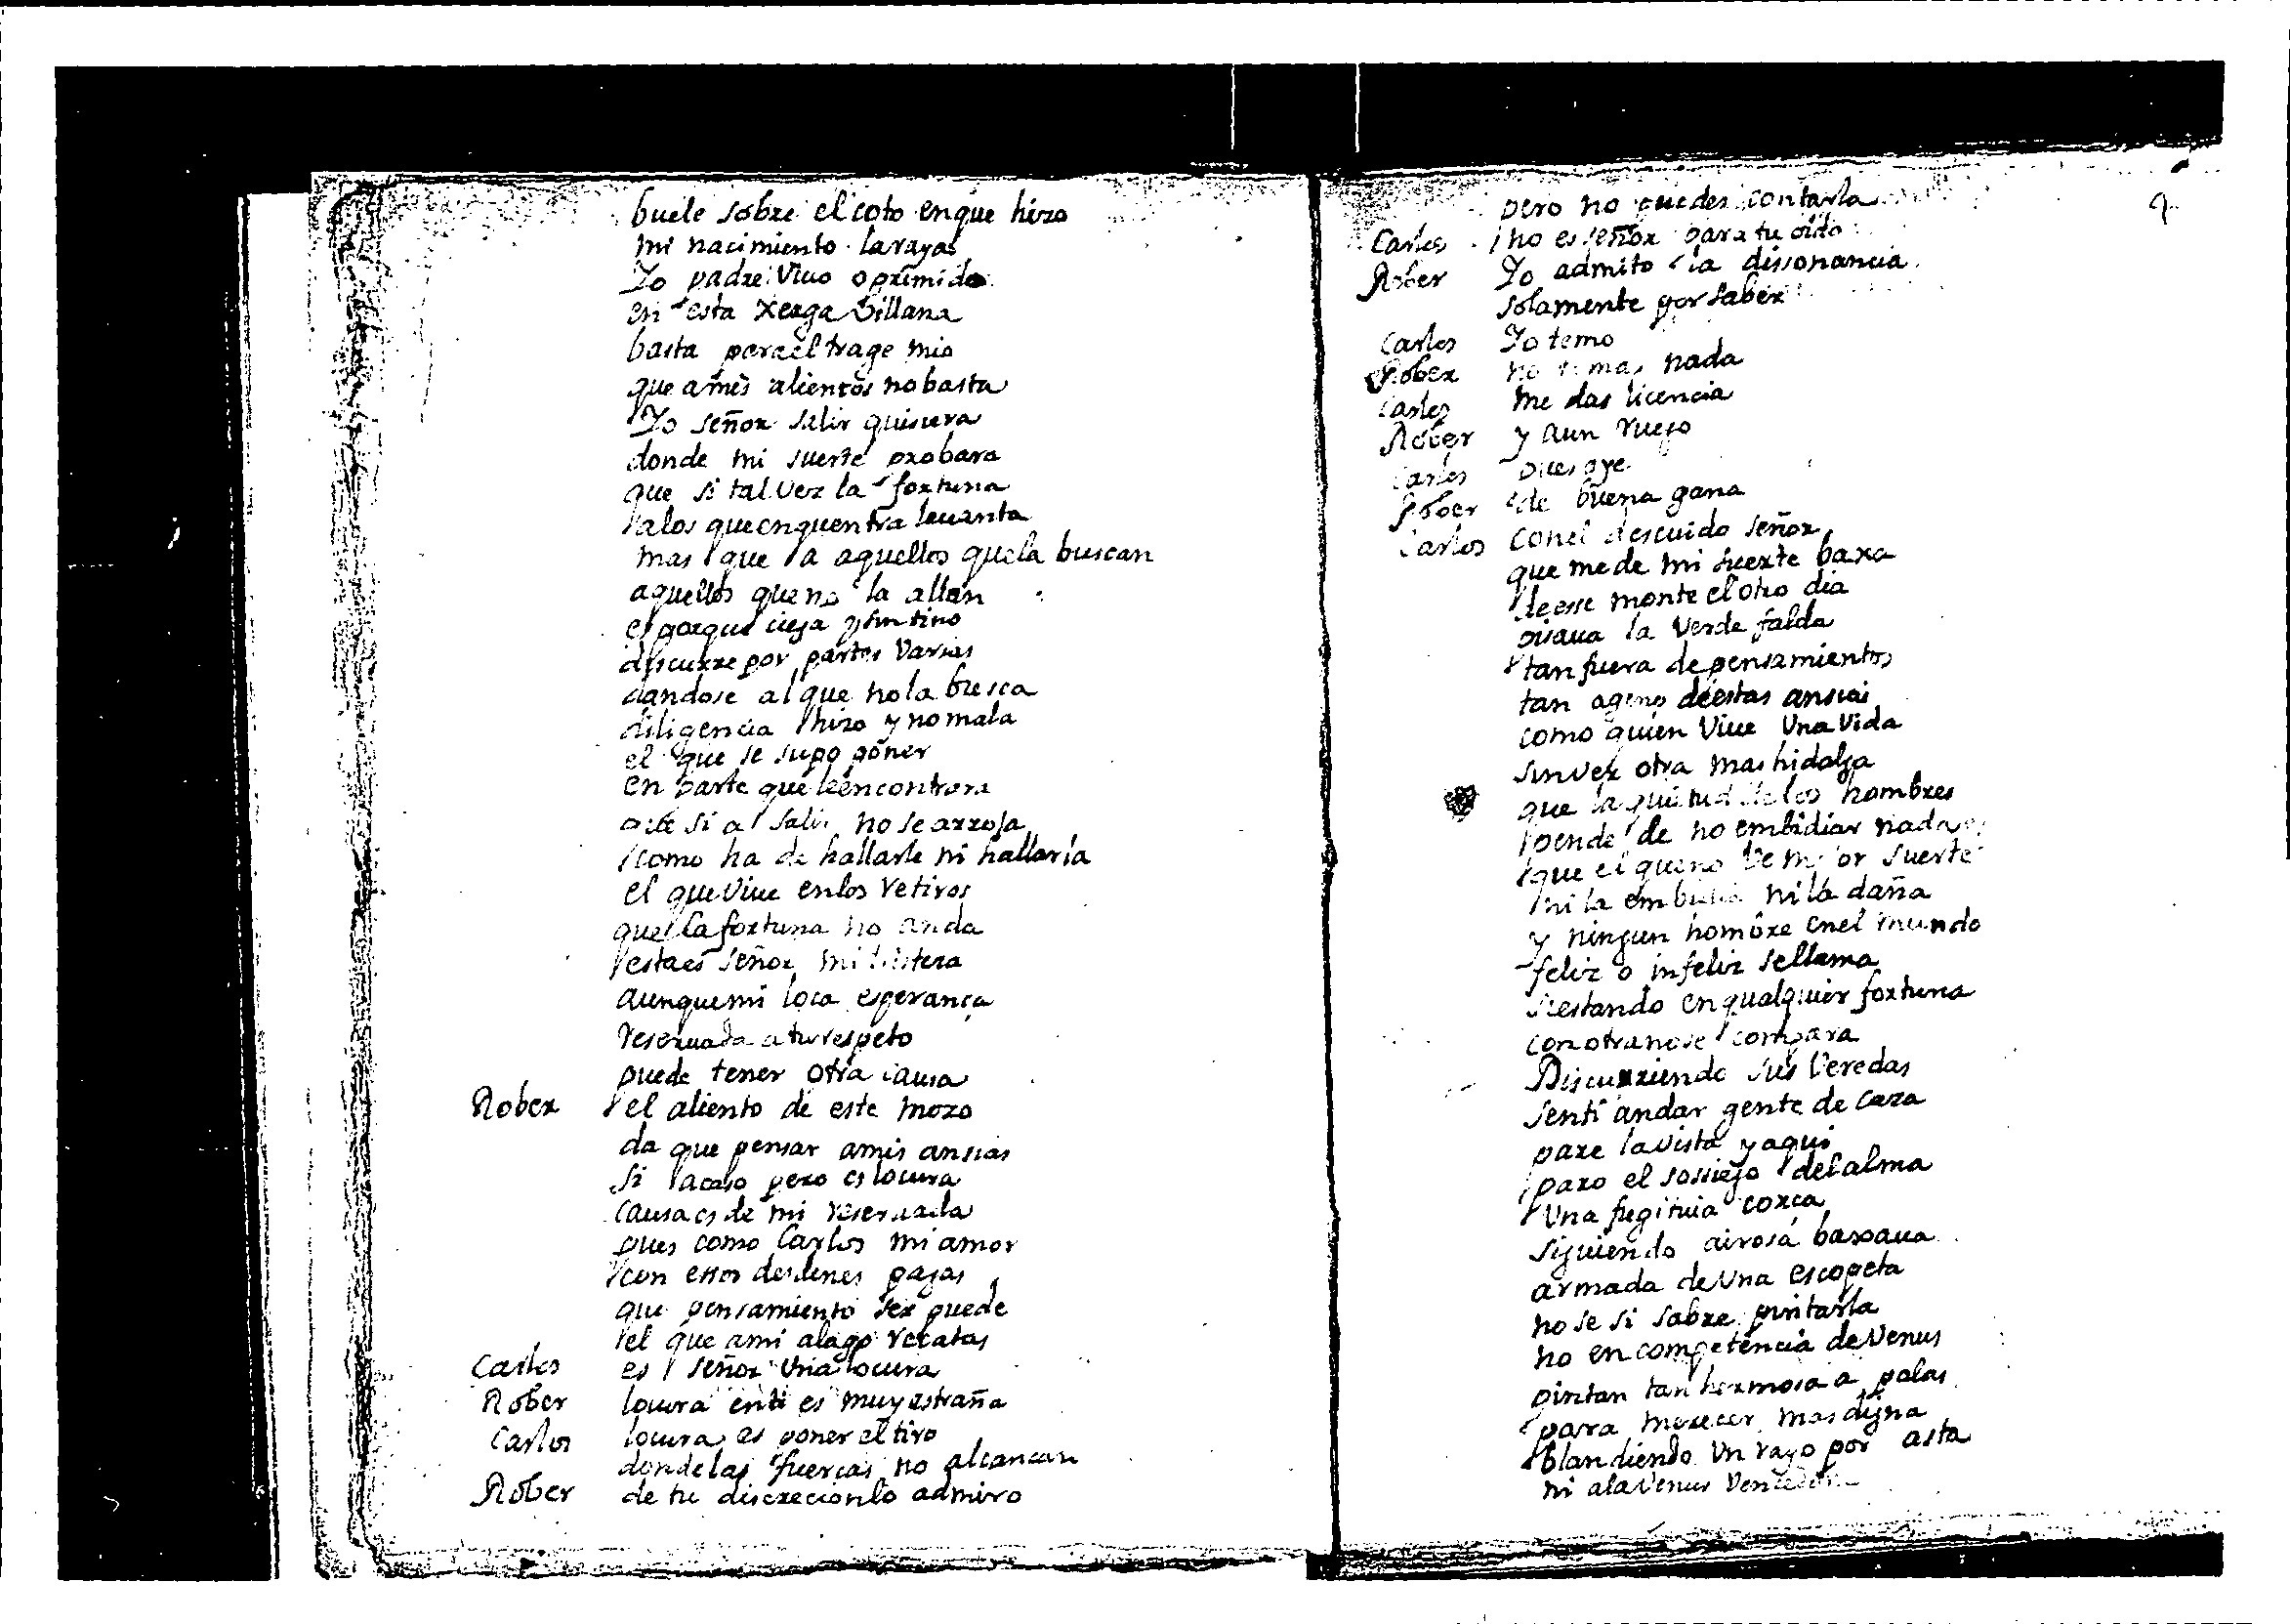 buele sobre el coto enque hizo
mi nacimiento la raya
Yo padre viuo oprimido
en esta xerga villana
basta parael trage mio
que amis alientos nobasta
Yo señor salir quisiera
donde mi suerte probara
que si talvez la fortuna
alos queenquentra leuanta
mas que a aquellos quela buscan
aquellos queno la allan
es porque ciega y sin tino
discurre por partes varias
dandose al que nola busca
diligencia hizo y no mala
el que se supo poner
en parte que leencontrara
que si a salir no se arroja
como ha de hallarle ni hallarla
el queviue enlos retiros
que la fortuna no anda
estaes señor mi
aunquemi loca esperança
reseruada a turespeto
puede tener otra causa
Rober el aliento de este mozo
da que pensar amis ansias
si acaso pero es locura
causa es de mi reseruada
pues como Carlos mi amor
con essos desdenes pagas
que pensamiento ser puede
el que ami alago recatas
Carlos es señor una locura
Rober locura enti es muy estraña
Carlos locura es poner el tiro
dondelas fuercas no alcancan
Rober de tu discrecionlo admiro
pero no puedes contarla
Carlos no es señor para tu oido
Rober Yo admito la dissonancia
solamente por saber
Carlos Yo temo
Rober no temas nada
Carlos me das licencia
Rober y aun ruego
Carlos pues oye
Rober de buena gana
Carlos conel descuido señor
que mede mi suerte baxa
deesse monte el otro dia
pisaua la verde falda
tan fuera de pensamientos
tan ageno deestas ansias
como quien viue una vida
sinver otra mas hidalga
que la quietud delos hombres
pende de no embidiar nada
que el queno ve mejor suerte
ni la embidia ni la daña
y ningun hombre enel mundo
feliz o infeliz sellama
siestando en qualquier fortuna
conotranose compara
Discurriendo sus veredas
senti andar gente de caza
pare la vista y aqui
paro el sossiego del alma
una fugitiua corca
siguiendo airosa baxaua
armada de una escopeta
no se si sabre pintarla
no en competencia de Venus
pintan tan hermosa a palas
para merecer mas digna
blandiendo un rayo por asta
ni ala Venus